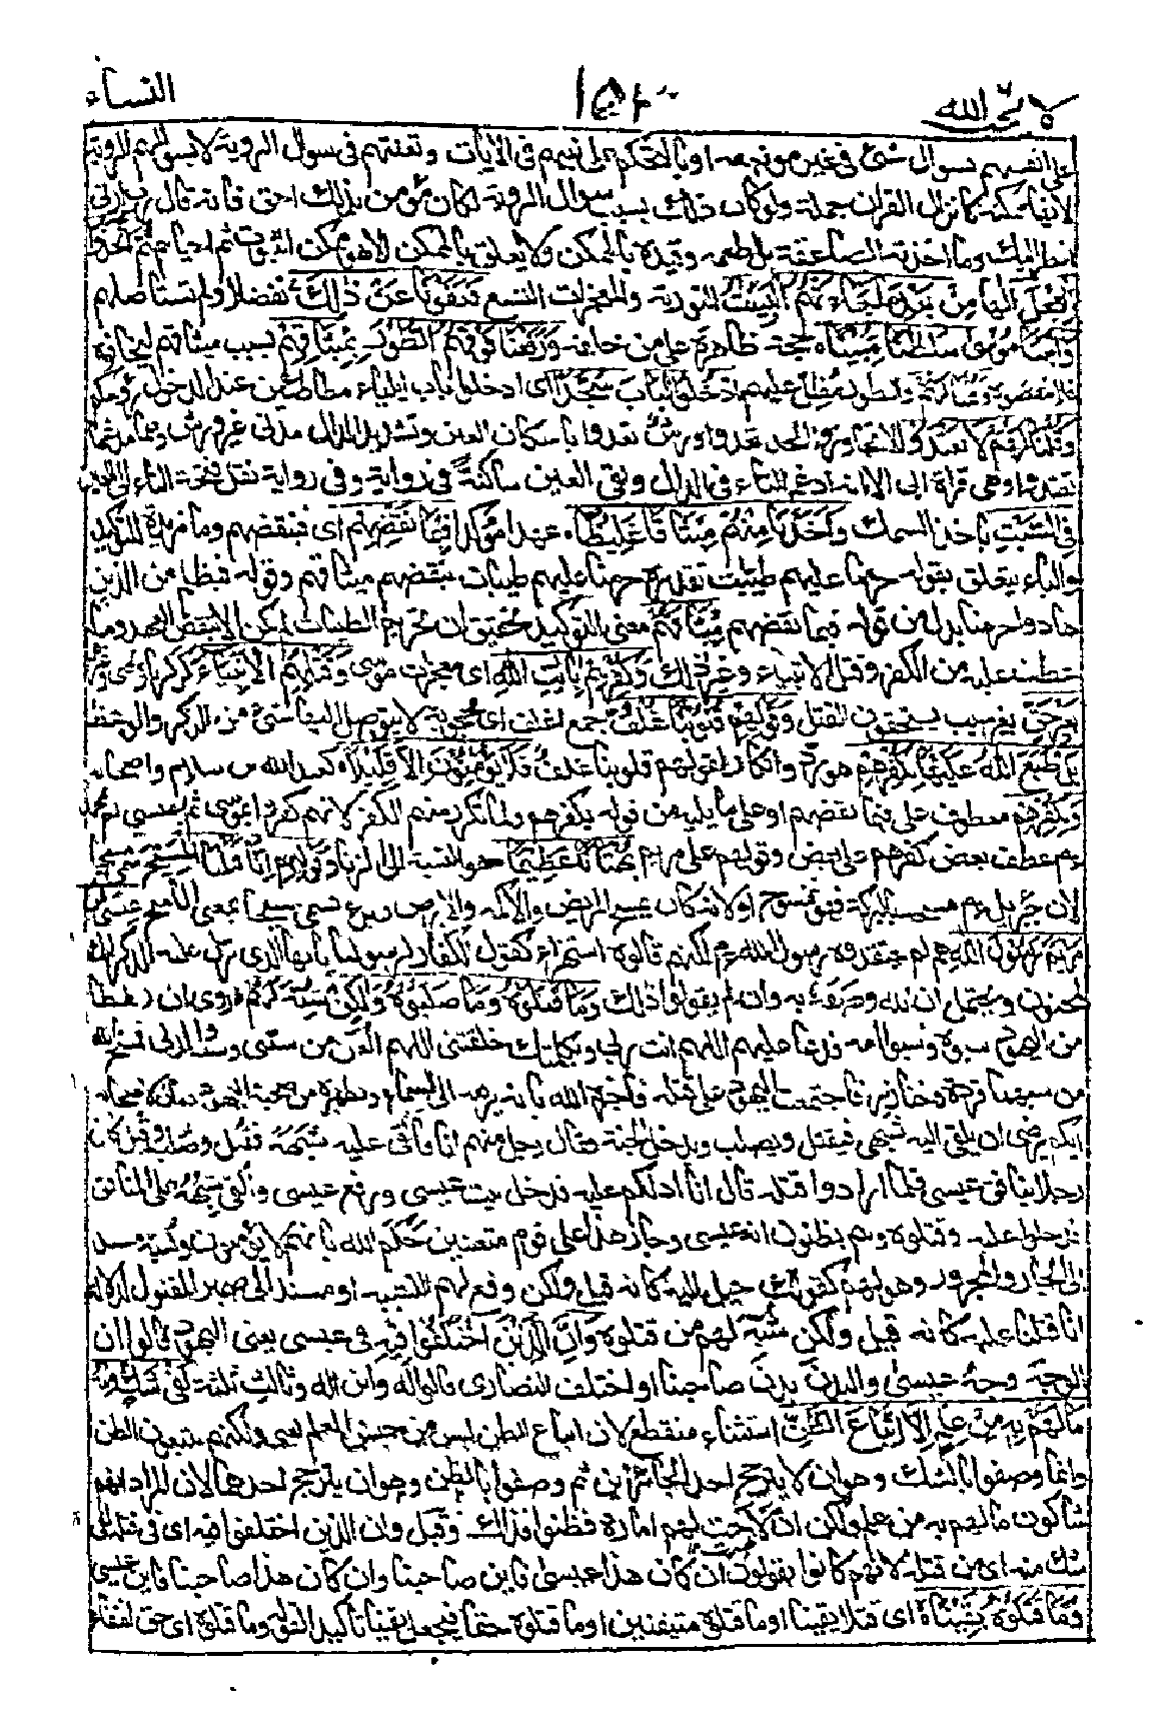 لا يحب الله ١٥٣ النساء
على انفسهم بسوال شئ في غير موضعه او بالتحكم على نبيهم في الآيات وتعنتهم في سوال الروية لا بسوالهم الروية
لانها ممكنة كانزال القران جملة ولو كان ذلك بسبب سوال الروية لكان موسى بذلك احق فانه قال رب ارني
انظر اليك وما اخذته الصاعقة بل اطمعه وقيده بالممكن ولا يعلق بالممكن الا هو ممكن الثبوت ثم احياهم ثم اتخذوا
العجل الها من بعد ما جاءتهم البينت التورية والمعجزات التسع فعفونا عن ذلك تفضلا ولم نستاصلهم
واتينا موسى سلطنا مبينا حجة ظاهرة على من خالفه ورفعنا فوقهم الطور بميثاقهم بسبب ميثاقهم ليخافوا
فلا ينقضوه وقلنا لهم والطور مظل عليهم ادخلوا الباب سجدا اى ادخلوا باب ايلياء مطاطئين عند الدخول رؤسكم
وقلنا لهم لا تعدوا لا تجاوزوا الحد تعدوا ورش تعدوا باسكان العين وتشديد الدال مدنى غير ورش وهما مدغما
تعتدوا وهى قراة ابى الا انه ادغم التاء في الدال وبقى العين ساكنة في رواية وفى رواية نقل فتحة التاء الى العين
في السبت باخذ السمك واخذنا منهم ميثاقا غليظا عهدا مؤكدا فبما نقضهم اى فبنقضهم وما مزيدة للتوكيد
والباء يتعلق بقوله حرمنا عليهم طيبت تقديره حرمنا عليهم طيبات بنقضهم ميثاقهم وقوله فبظلم من الذين
هادوا حرمنا بدل من قوله فبما نقضهم ميثاقهم معنى التوكيد تحقيق ان تحريم الطيبات لم يكن الا بنقض العهد وما
عطف عليه من الكفر وقتل الانبياء وغير ذلك وكفرهم بايت الله اى معجزات موسى وقتلهم الانبياء كزكريا ويحيى وغيرهما
بغير حق بغير سبب يستحقون القتل وقولهم قلوبنا غلف جمع اغلف اى محجوبة لا يتوصل اليها شئ من الذكر والوعظ
بل طبع الله عليها بكفرهم هو رد وانكار لقولهم قلوبنا غلف فلا يؤمنون الا قليلا كعبد الله بن سلام واصحابه
وبكفرهم معطوف على فبما نقضهم او على ما يليه من قوله بكفرهم ولما تكرر منهم الكفر لانهم كفروا بموسى ثم بعيسى ثم بمحمد
عم عطف بعض كفرهم على بعض وقولهم على مريم بهتانا عظيما هو النسبة الى الزنا وقولهم انا قتلنا المسيح سمى مسيحا
لان جبريل عم مسحه بالبركة فهو ممسوح او لانه كان يمسح المريض والاكمه والابرص فيبرء فسمى مسيحا بمعنى الماسح عيسى ابن
مريم رسول الله هم لم يعتقدوه رسول الله عم لكنهم قالوه استهزاء كقول الكفار لرسولنا يايها الذى نزل عليه الذكر انك
لمجنون ويحتمل ان الله وصفه به وان لم يقولوا ذلك وما قتلوه وما صلبوه ولكن شبه لهم روى ان رهطا
من اليهود سبوه وسبوا امه فدعا عليهم اللهم انت ربى وبكلمتك خلقتنى اللهم العن من سبنى وسب والدتى فمسخ الله
من سبهما قردة وخنازير فاجتمعت اليهود على قتله فاخبره الله بانه يرفعه الى السماء ويطهره من صحبة اليهود فقال لاصحابه
ايكم يرضى ان يلقى اليه شبهى فيقتل ويصلب ويدخل الجنة فقال رجل منهم انا فالقى عليه شبهه فقتل وصلب وقيل كان
رجلا ينافق عيسى فلما ارادوا قتله قال انا ادلكم عليه فدخل بيت عيسى ورفع عيسى والقى شبهه على المنافق
فدخلوا عليه وقتلوه وهم يظنون انه عيسى وجاز هذا على قوم متعنتين حكم الله بانهم لا يؤمنون وشبه مسند
الى الجار والمجرور وهو لهم كقولك خيل اليه كانه قيل ولكن وقع لهم التشبيه او مسند الى ضمير المقتول لدلالة
انا قتلنا عليه كانه قيل ولكن شبه لهم من قتلوه وان الذين اختلفوا فيه في عيسى يعنى اليهود قالوا ان
الوجه وجه عيسى والبدن بدن صاحبنا او اختلف النصارى قالوا اله وابن اله وثالث ثلثة لفى شك منه
ما لهم به من علم الا اتباع الظن استثناء منقطع لان اتباع الظن ليس من جنس العلم يعنى ولكنهم يتبعون الظن
وانما وصفوا بالشك وهو ان لا يترجح احد الجائزين ثم وصفوا بالظن وهو ان يترجح احدهما لان المراد انهم
شاكون ما لهم به من علم ولكن ان لاحت لهم امارة فظنوا فذاك وقيل وان الذين اختلفوا فيه اى في قتله لفى
شك منه اى من قتله لانهم كانوا يقولون ان كان هذا عيسى فاين صاحبنا وان كان هذا صاحبنا فاين عيسى
وما قتلوه يقينا اى قتلا يقينا او ما قتلوه متيقنين او ما قتلوه حقا فيجعل يقينا تاكيدا لقوله وما قتلوه اى حق انتفاء